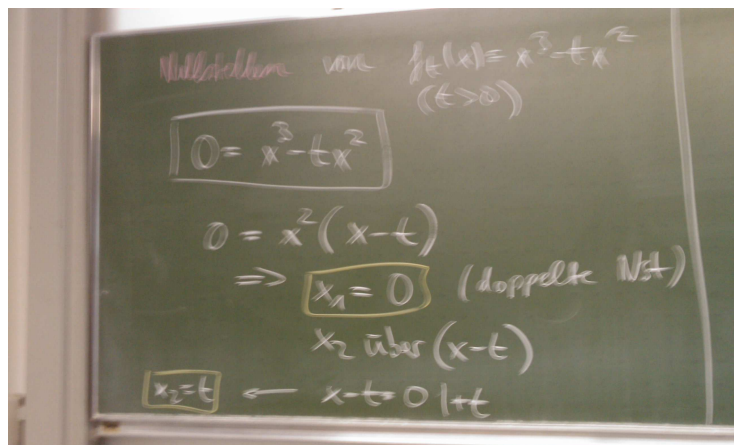 Nullstellen von fₜ(x)= x³-tx²
(t>0)
0= x³-tx²
0 = x²(x-t)
=> x₁= 0 (doppelte Nst)
x₂ über (x-t)
x₂=t ← x-t=0 |+t